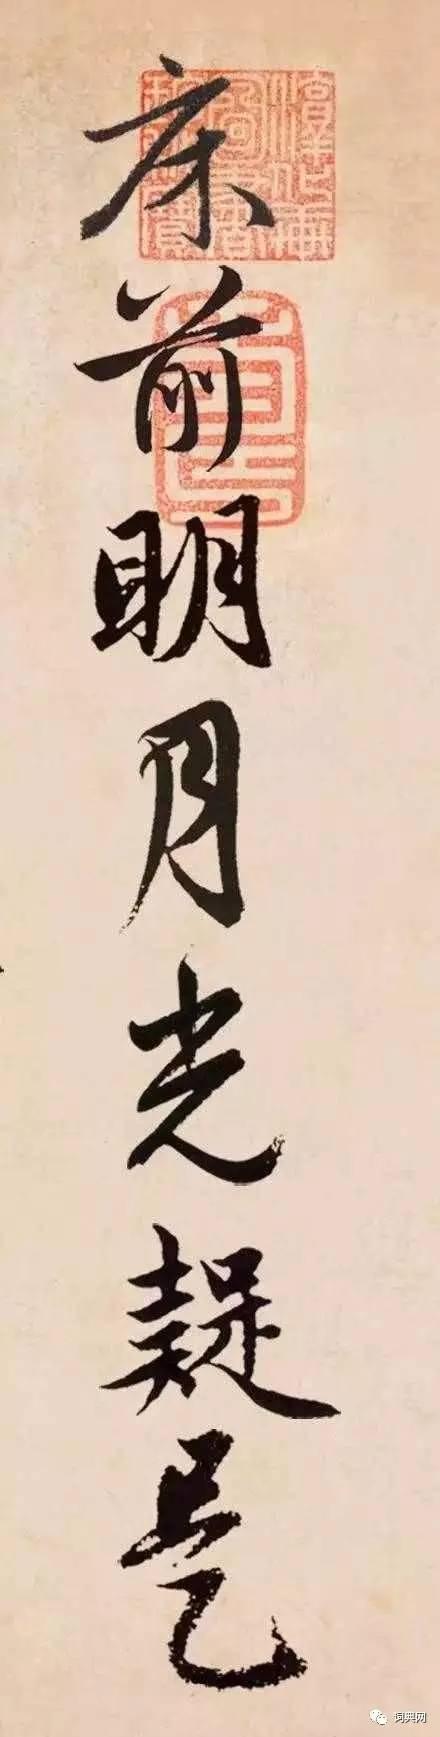 床前明月光疑是
词典网